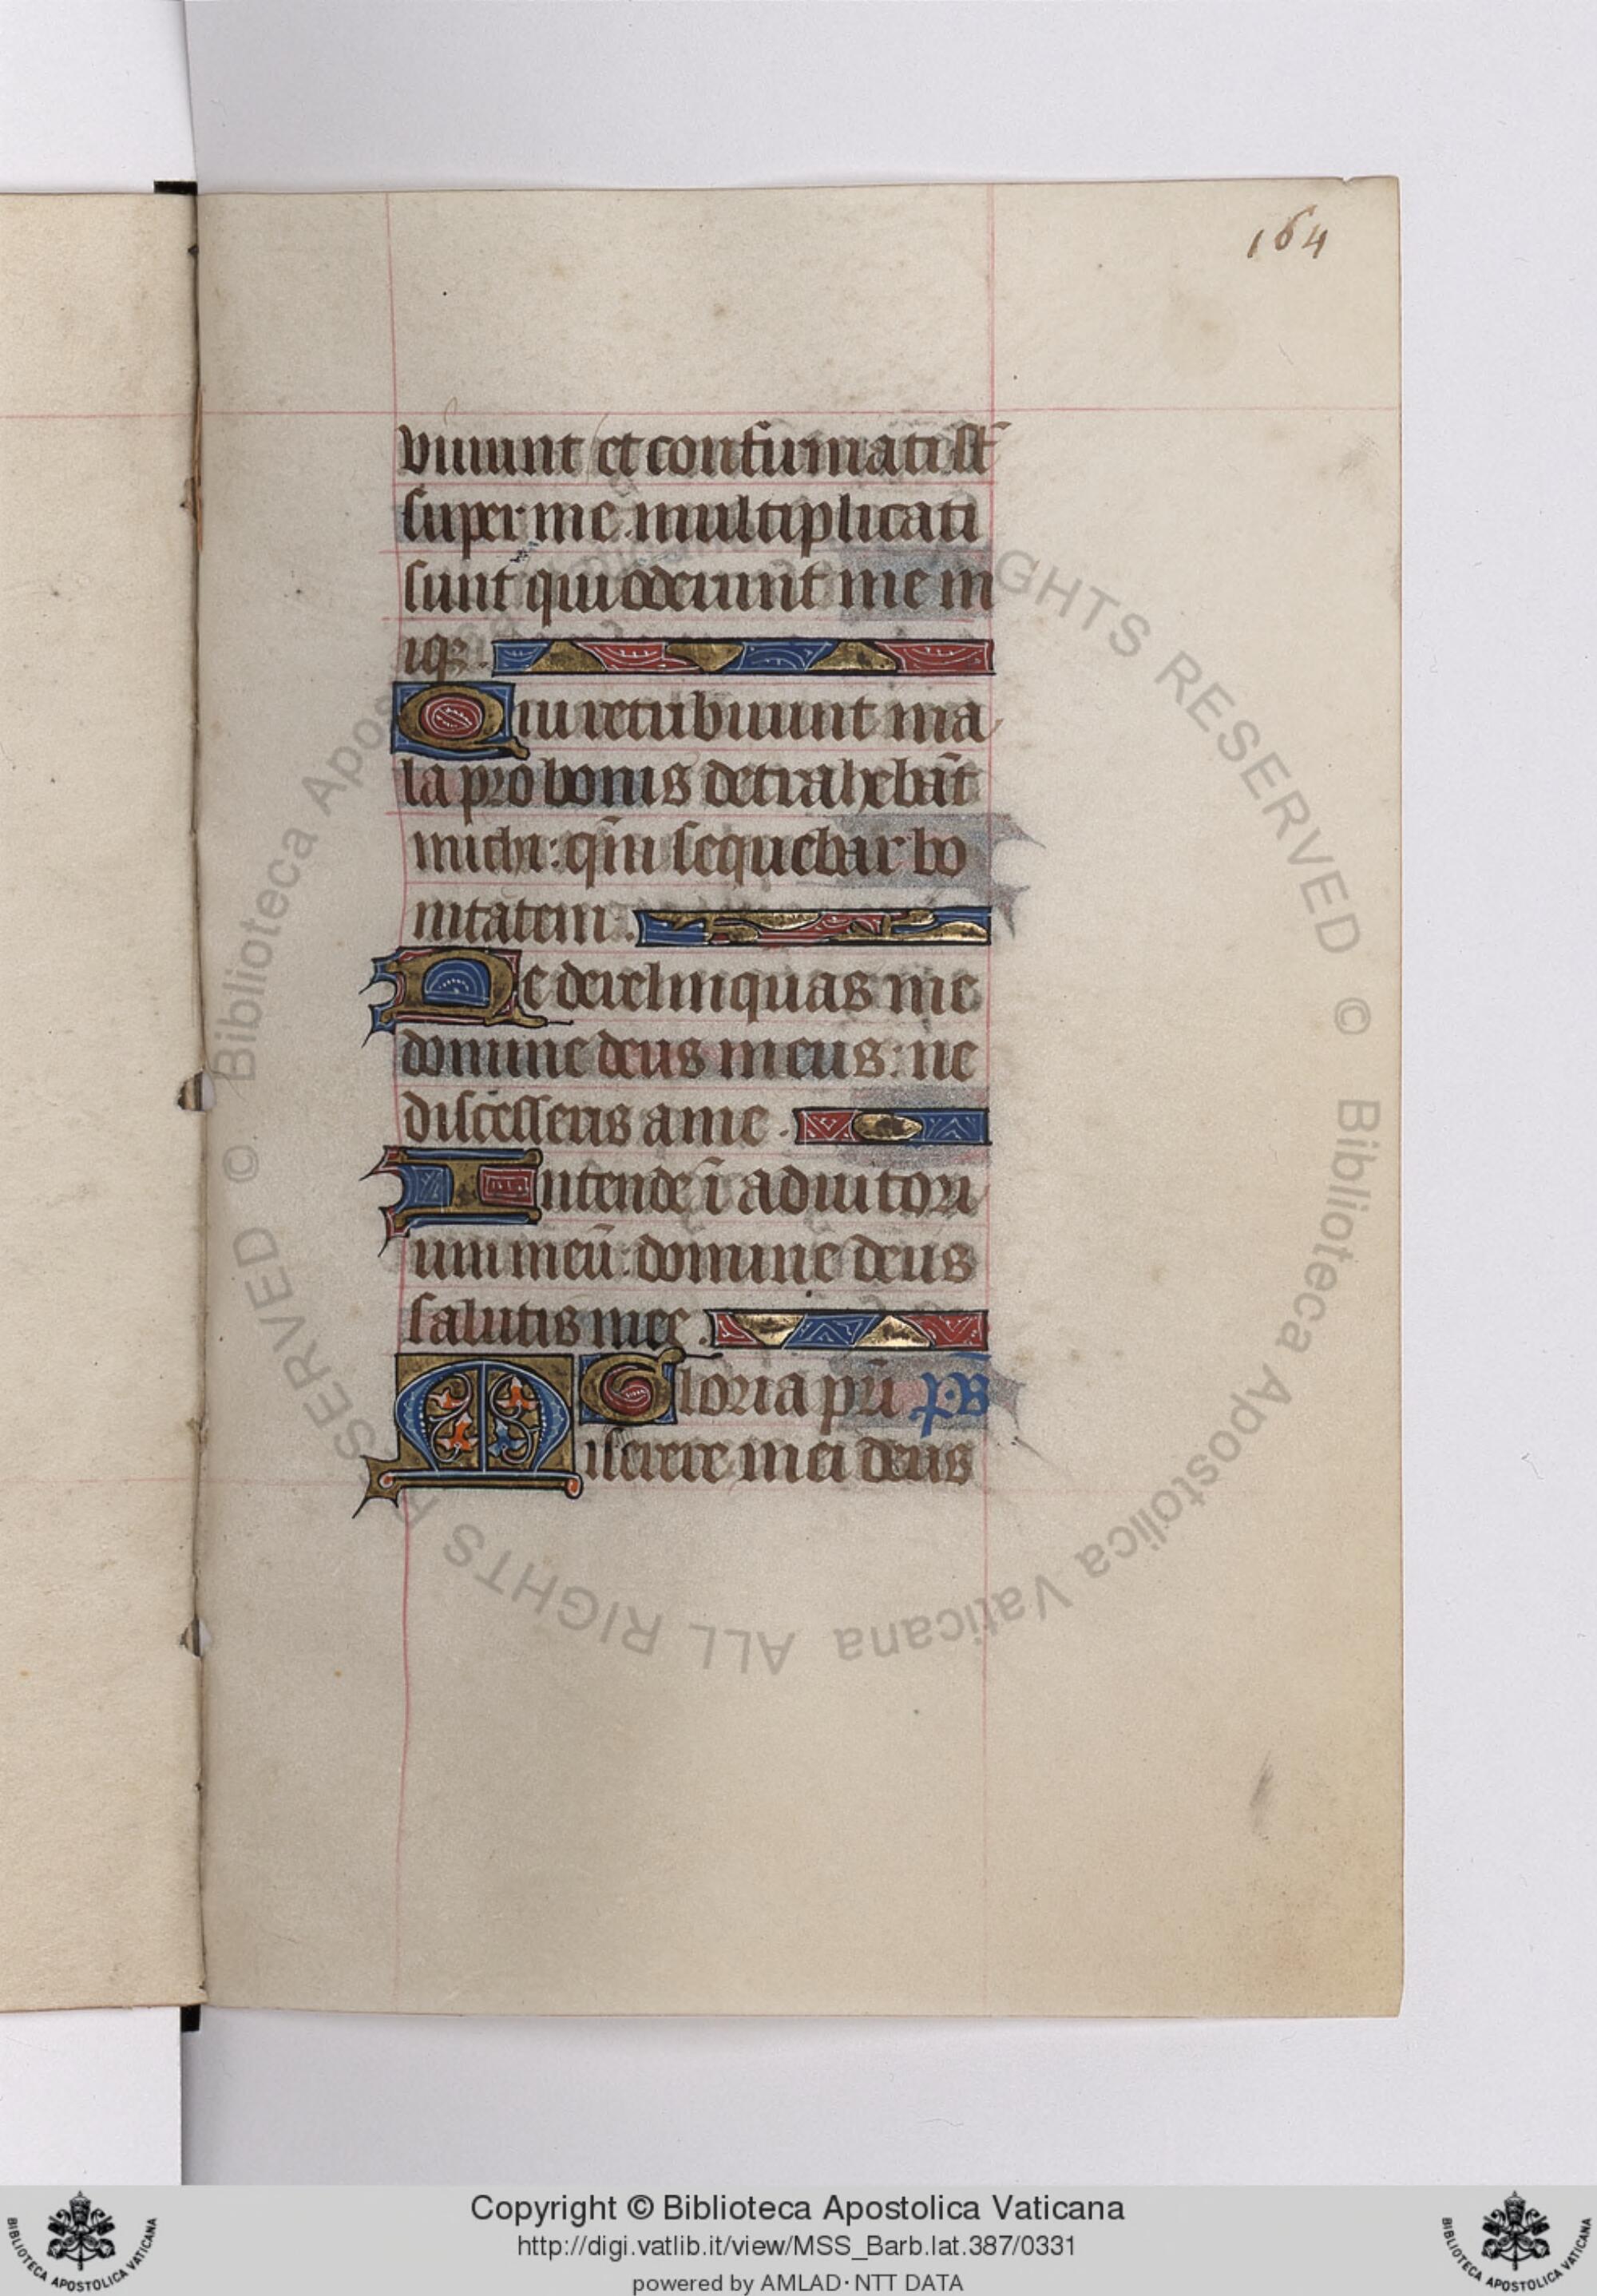 164
viuunt et confirmati st̄
super me. multiplicati
sunt qui oderunt me in
iqꝫ.
Qui retribuunt ma
la pro bonis detrahebāt
michi: qm̄ sequebar bo
nitatem.
Ne derelinquas me
domine deus meus: ne
discesseris a me.
Intende ī adiutori
um meū: domine deus
salutis mee.
Gloria prī ps̄
Miserere mei deus
© Biblioteca Apostolica Vaticana ALL RIGHTS RESERVED
Copyright © Biblioteca Apostolica Vaticana
http://digi.vatlib.it/view/MSS_Barb.lat.387/0331
powered by AMLAD·NTT DATA
BIBLIOTECA APOSTOLICA VATICANA
BIBLIOTECA APOSTOLICA VATICANA